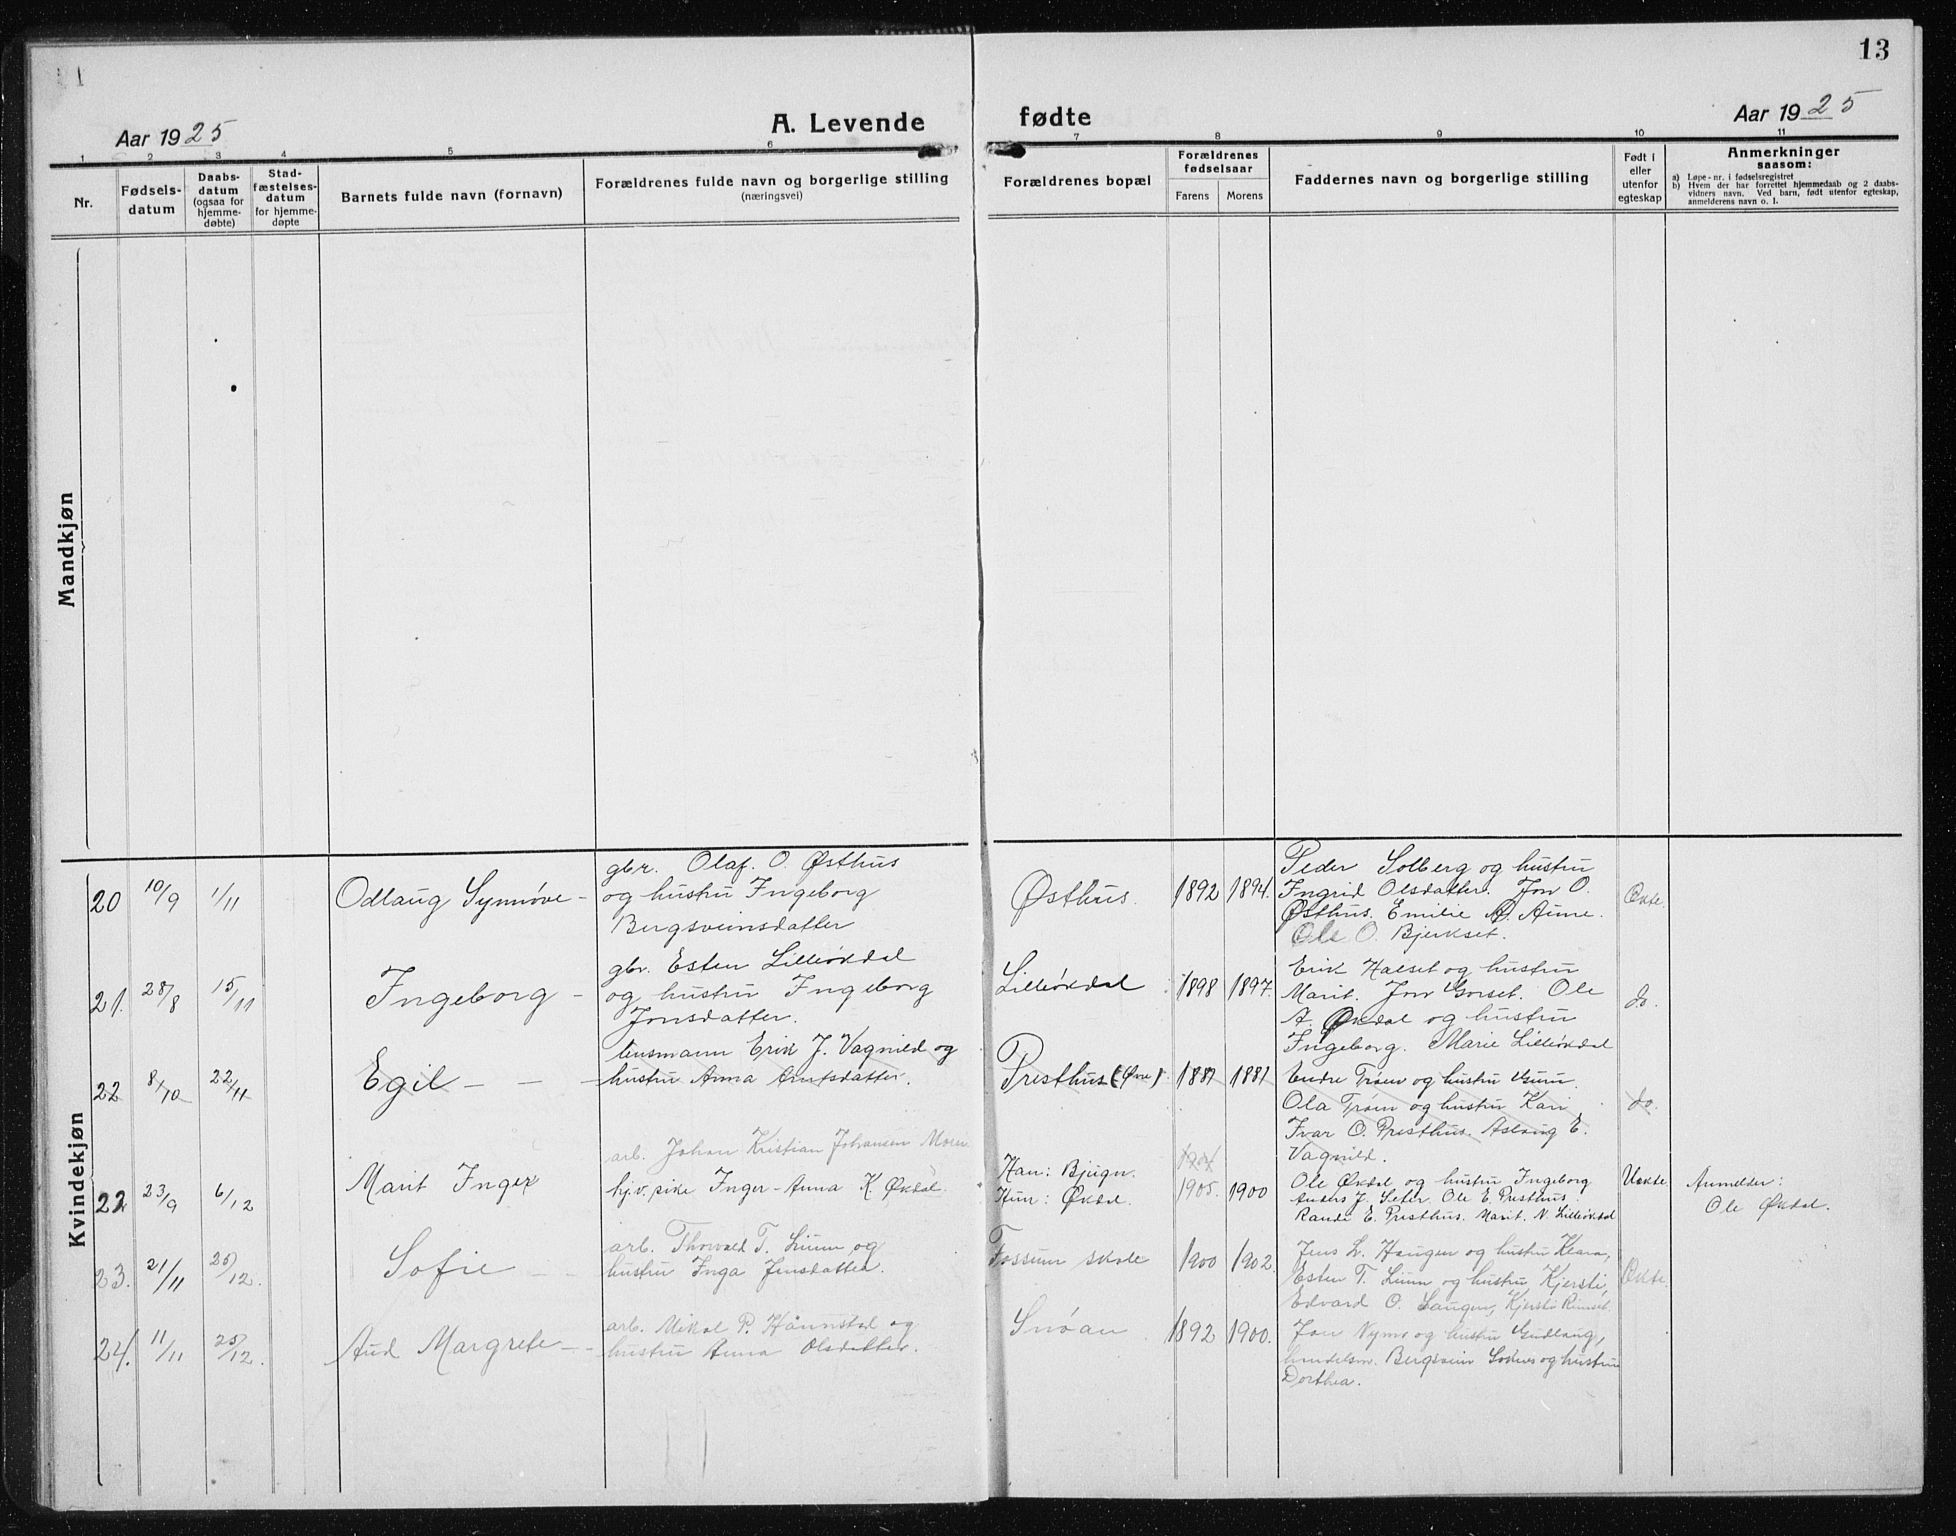 13
Aar 1925
A. Levende fødte
Aar 1925
1 2 3 4 5 6 7 8 9 10 11
Nr.
Fødsels-
datum
Daabs-
datum
(ogsaa for
hjemme-
døbte)
Stad-
fæstelses-
datum
for hjemme-
døpte
Barnets fulde navn (fornavn)
Forældrenes fulde navn og borgerlige stilling
(næringsvei)
Forældrenes bopæl
Forældrenes
fødselsaar
Farens Morens
Faddernes navn og borgerlige stilling
Født i
eller
utenfor
egteskap
Anmerkninger
saasom:
a) Løpe-nr. i fødselsregistret
b) Hvem der har forrettet hjemmedaab og 2 daabs-
vidners navn. Ved barn, født utenfor egteskap,
anmelderens navn o. l.
Mandkjøn
Kvindekjøn
20 10/9 1/11 Odlaug Synnøve -
gbr. Olaf. O. Østhus
og hustru Ingeborg
Bergsveinsdatter
Østhus. 1892 1894.
Peder Solberg og hustru
Ingrid Olsdatter. Jon O.
Østhus. Emilie A. Aune.
Ole O. Bjerkset.
Ekte.
21. 28/8 15/11 Ingeborg -
gbr. Esten Lilleøkdal
og hustru Ingeborg
Jonsdatter.
Lilleøkdal 1898 1897.
Erik Halset og hustru
Marit. Jon Gorset. Ole
A. Økdal og hustru
Ingeborg. Marie Lilleøkdal
do.
22 8/10 22/11 Egil - - -
lensmann Erik J. Vagnild og
hustru Anna Arntsdatter.
Presthus (Øvre) 1881 1881
Endre Trøen og hustru Guru.
Ola Trøen og hustru Kari
Ivar O. Presthus. Aslaug E.
Vagnild.
do.
22 23/9 6/12 Marit Inger
arb. Johan Kristian Johansen
hj.v. pike Inger-Anna K. Økdal.
Han: Bjugn.
Hun: Økdal.
1904
1905. 1900
Ole Økdal og hustru Ingeborg
Anders J. Seter. Ole E. Presthus.
Randi E. Presthus. Marit. N. Lilleøkdal
Uekte.
Anmelder:
Ole Økdal.
23. 21/11 25/12. Sofie - -
arb. Thorvald T. Lium og
hustru Inga Jensdatter.
Fossum skole 1900 1902
Jens L. Haugen og hustru Klara,
Esten T. Lium og hustru Kjersti,
Edvard O. Haugen, Kjersti Rimset.
Ekte.
24. 11/11 25/12. Aud Margrete - -
arb. Mikal P. Hånnstad og
hustru Anna Olsdatter.
Snøan 1892 1900.
Jon Nymo og hustru Gudlaug,
handelsm. Bergsvein Soknes og hustru
Dorthea.